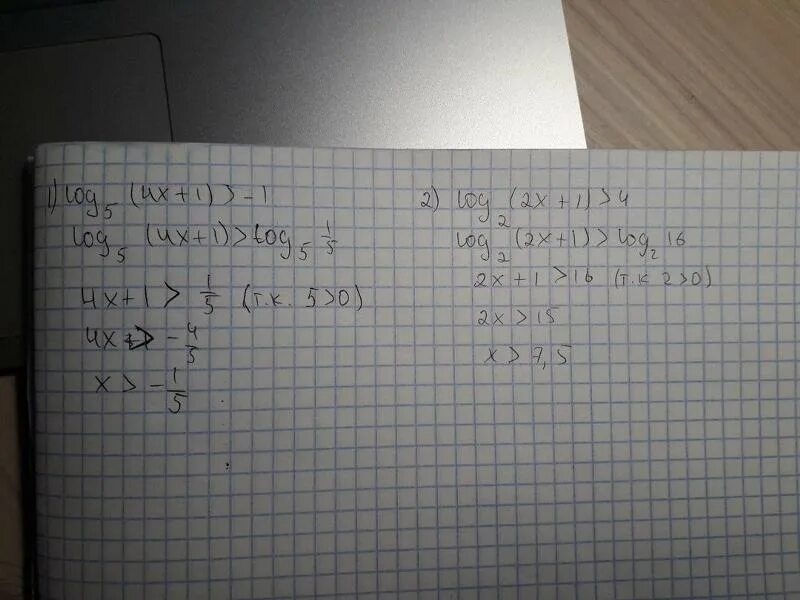 1) log₅ (4x+1) > -1
log₅ (4x+1) > log₅ 1/5
4x+1 > 1/5 (т.к. 5>0)
4x > -4/5
x > -1/5
2) log₂ (2x+1) > 4
log₂ (2x+1) > log₂ 16
2x+1 > 16 (т.к 2>0)
2x > 15
x > 7,5